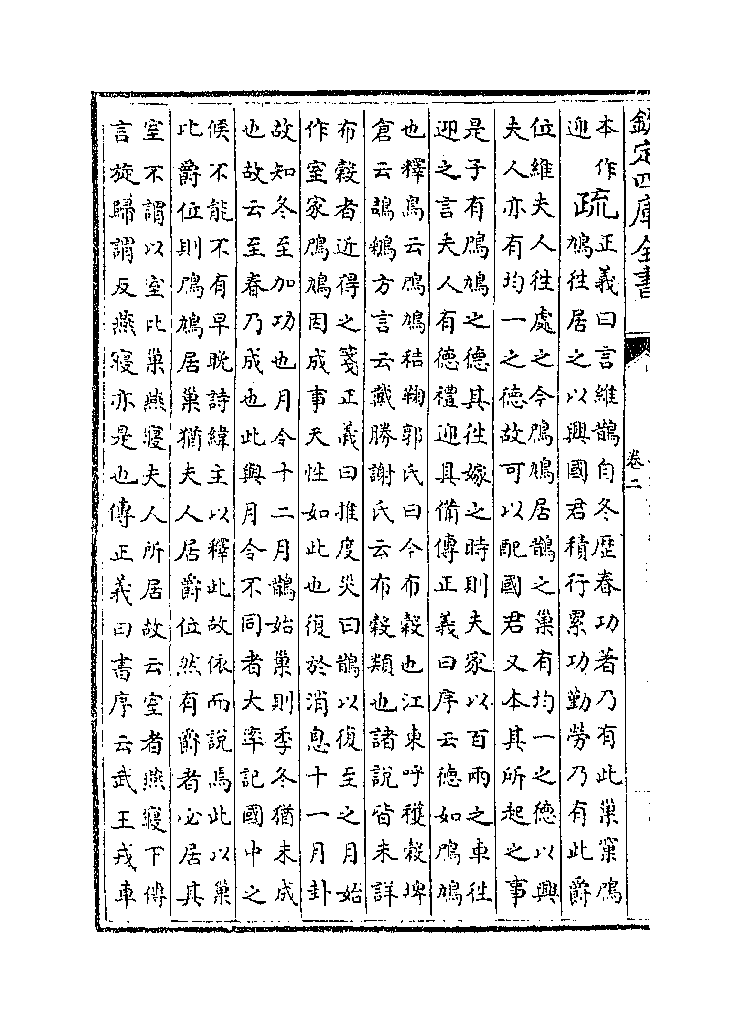 欽定四庫全書
卷二
本作
迎
疏
正義曰言維鵲自冬歷春功著乃有此巢窠鳲
鳩徃居之以興國君積行累功勤勞乃有此爵
位維夫人徃處之今鳲鳩居鵲之巢有均一之德以興
夫人亦有均一之德故可以配國君又本其所起之事
是子有鳲鳩之德其徃嫁之時則夫家以百兩之車徃
迎之言夫人有德禮迎具備傳正義曰序云德如鳲鳩
也釋鳥云鳲鳩秸鞠郭氏曰今布穀也江東呼穫穀埤
倉云鴶鵴方言云戴勝謝氏云布穀類也諸說皆未詳
布穀者近得之箋正義曰推度災曰鵲以復至之月始
作室家鳲鳩因成事天性如此也復於消息十一月卦
故知冬至加功也月令十二月鵲始巢則季冬猶未成
也故云至春乃成也此與月令不同者大率記國中之
候不能不有早晚詩緯主以釋此故依而說焉此以巢
比爵位則鳲鳩居巢猶夫人居爵位然有爵者必居其
室不謂以室比巢燕寢夫人所居故云室者燕寢下傳
言旋歸謂反燕寢亦是也傳正義曰書序云武王戎車